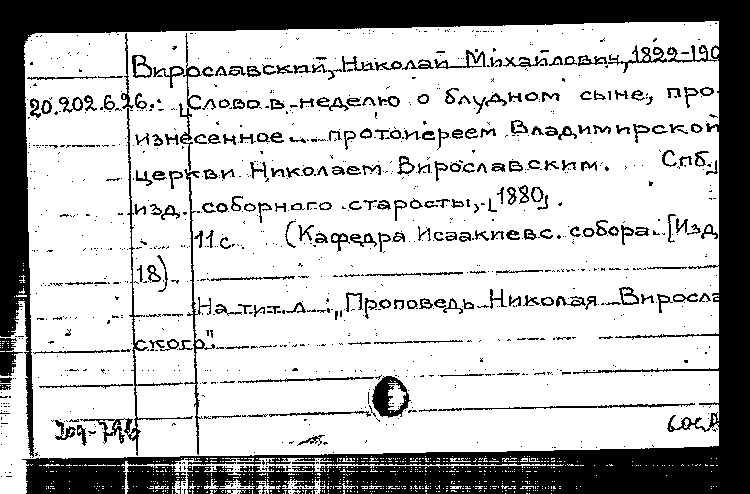 Вирославский, Николай Михайлович, 1822-190
20.202.6.26.: [Слово в неделю о блудном сыне, про-
изнесенное... протоиереем Владимирской
церкви Николаем Вирославским. Спб.,
изд. соборного старосты, [1880].
11 с. (Кафедра Исаакиевс. собора. [Изд.
18)
На тит. л.: „Проповедь Николая Виросла
ского".